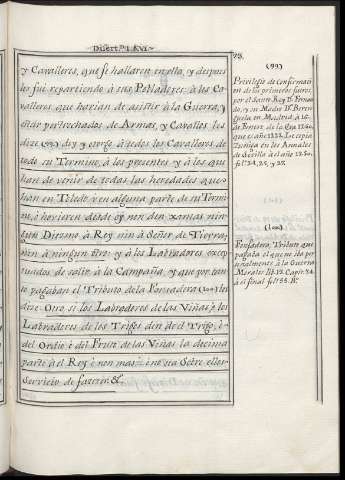 Disert.ⁿ I. §. VI.
73.
y Cavalleros, que se hallaren en ello, y despues
les fue repartiendo à sus Pobladores, à los Ca-
valleros, que havian de asistir à la Guerra, y
estár pertrechados de Armas, y Cavallos les
dize (99) doy y otorgo à todos los Cavalleros de
todo su Termino, à los presentes y à los que
han de venir de todas las heredades que o-
han en Toledo y en alguna parte de su Termi-
no, ò hovieren desde oy non den xamas nin-
gun Diezmo à Rey nin à Señor de Tierra,
nin à ningun otro: y à los Labradores excep-
tuados de salir à la Campaña, y que por tan-
to pagaban el Tributo de la Fonsadera (100) les
dize: Otro si los Labradores de las Viñas, è los
Labradores de los Trigos den de el Trigo, è
del Ordio è del Fruto de las Viñas la decima
parte à el Rey è non mas: è no sea sobre ellos
Servicio de facer &c.
(99)
Privilegio de Confirmaci-
on de los primeros fueros,
por el Santo Rey Dⁿ. Fernan-
do, y su Madre Dª. Beren-
guela en Madrid, à 16.
de Enero de la Era 1260,
que es año 1222. Le copia
Zuñiga en los Annales
de Sevilla à el año 1250.
fol. 24, 25, y 27.
(100)
Fonsadera, Tributo que
pagaba el que no iba per-
sonalmente à la Guerra
Morales lib. 13. Cap.
à el final fol.